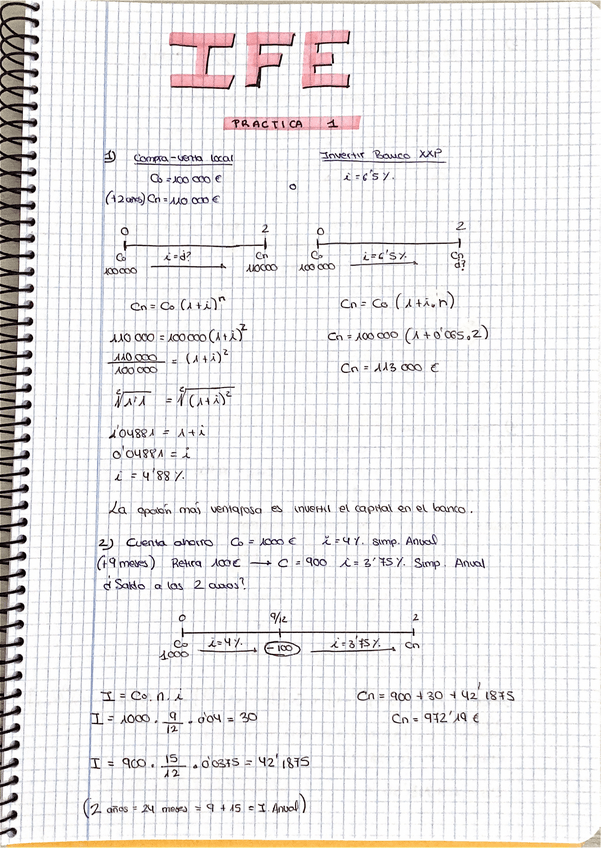 IFE
PRACTICA 1
1) Compra-venta local
Co = 100 000 €
(+2 años) Cn = 110 000 €
Invertir Banco XXP
i = 6'5 %.
0 2
Co i = ¿? Cn
100 000 110 000
0 2
Co i = 6'5 %. Cn
100 000 ¿?
Cn = Co (1+i)^n
110 000 = 100 000 (1+i)^2
110 000 / 100 000 = (1+i)^2
√1'1 = √(1+i)^2
1'04881 = 1+i
0'04881 = i
i = 4'88 %.
Cn = Co (1+i.n)
Cn = 100 000 (1+0'065.2)
Cn = 113 000 €
La opción más ventajosa es invertir el capital en el banco.
2) Cuenta ahorro Co = 1000 € i = 4 %. simp. Anual
(+9 meses) Retira 100€ → C = 900 i = 3'75 %. Simp. Anual
¿Saldo a las 2 años?
0 9/12 2
Co i = 4 %. -100 i = 3'75 %. Cn
1000
I = Co . n . i
I = 1000 . 9/12 . 0'04 = 30
I = 900 . 15/12 . 0'0375 = 42'1875
(2 años = 24 meses = 9 + 15 = I. Anual)
Cn = 900 + 30 + 42'1875
Cn = 972'19 €